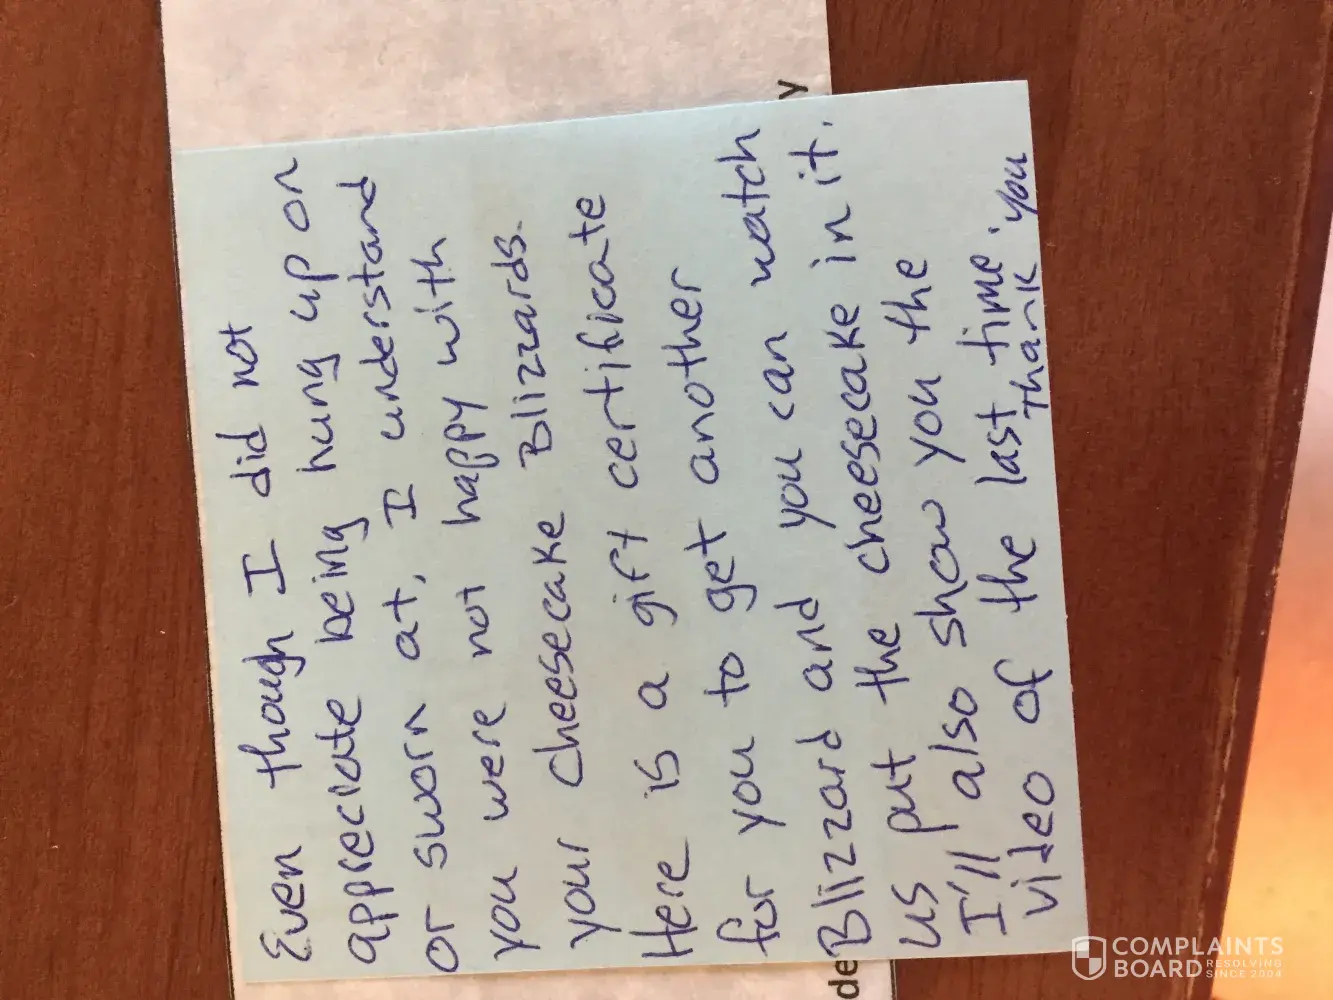 Even though I did not
appreciate being hung up on
or sworn at, I understand
you were not happy with
your cheesecake Blizzards.
Here is a gift certificate
for you to get another
Blizzard and you can watch
us put the cheesecake in it.
I'll also show you the
video of the last time.
Thank you
y
de
COMPLAINTS
BOARD RESOLVING
SINCE 2004